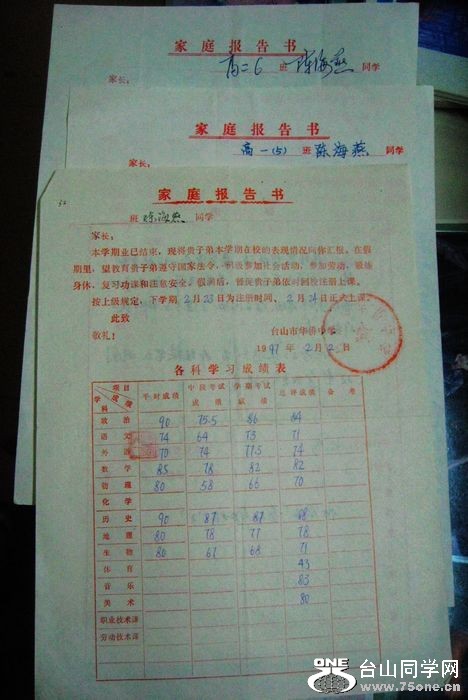 家庭报告书
高二6 班 陈海燕 同学
家长:
家庭报告书
高一(5) 班 陈海燕 同学
家长:
家庭报告书
32
班 陈海燕 同学
家长:
本学期业已结束,现将贵子弟本学期在校的表现情况向你汇报。在假
期里,望教育贵子弟遵守国家法令,积极参加社会活动,参加劳动,锻练
身体,复习功课和注意安全。假满后,督促贵子弟依时回校注册上课。
按上级规定,下学期2月23日为注册时间,2月24日正式上课。
此致
敬礼!
台山市华侨中学
1997年2月2日
各科学习成绩表
项目 成绩 学科 平时成绩 中段考试成绩 学期考试成绩 总评成绩 备考
政治 90 75.5 86 84
语文 74 64 73 71
外语 70 74 77.5 74
数学 85 78 82 82
物理 80 58 66 70
化学
历史 90 87 87 88
地理 80 78 77 78
生物 80 61 68 71
体育 43
音乐 83
美术 80
职业技术课
劳动技术课
ONE 台山同学网
www.75one.cn